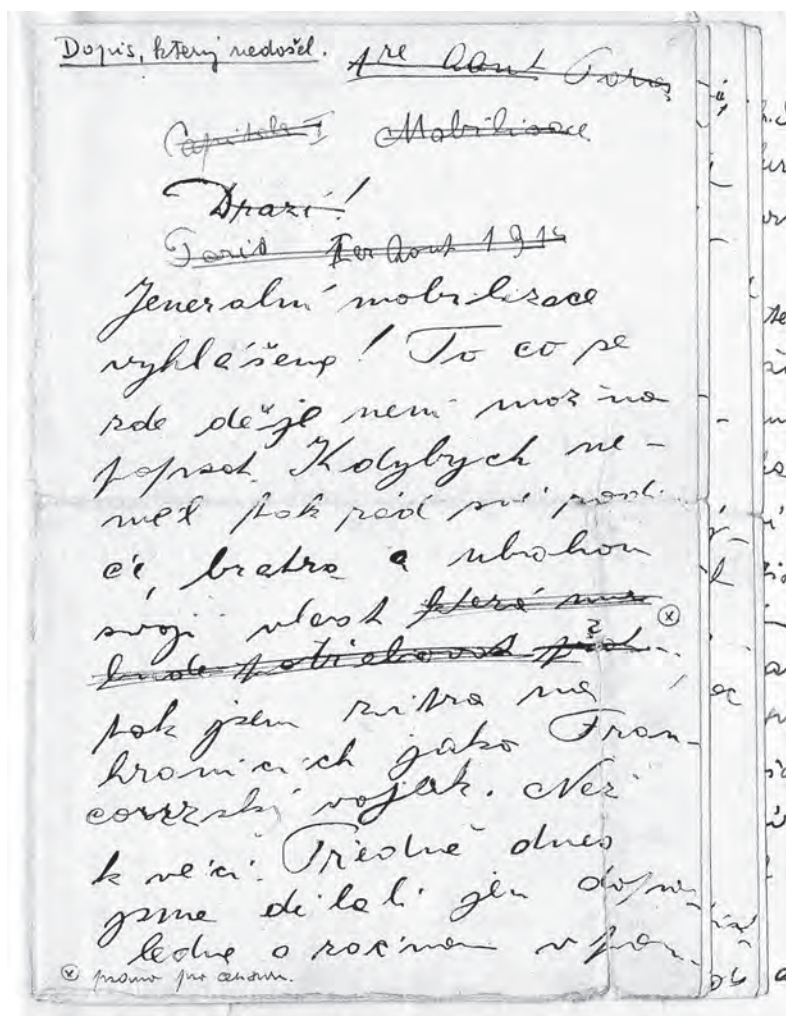 Dopis, který nedošel.
1re Aout Paris
Capitola I Mobilisace
Drazí!
Paris 1er Aout 1914
Jeneralní mobilizace
vyhlášena! To co se
zde děje není možno
popsat. Kdybych ne-
měl tak rád své rodi-
če, bratra a ubohou
svoji vlast která mne
bude potřebovat
tak jsem zitra na
hranicích jako Fran-
couzský vojak. Než
k věci. Předně dnes
jsme dělali jen dopo-
ledne a začnem v pon
ⓧ psano pro censuru.